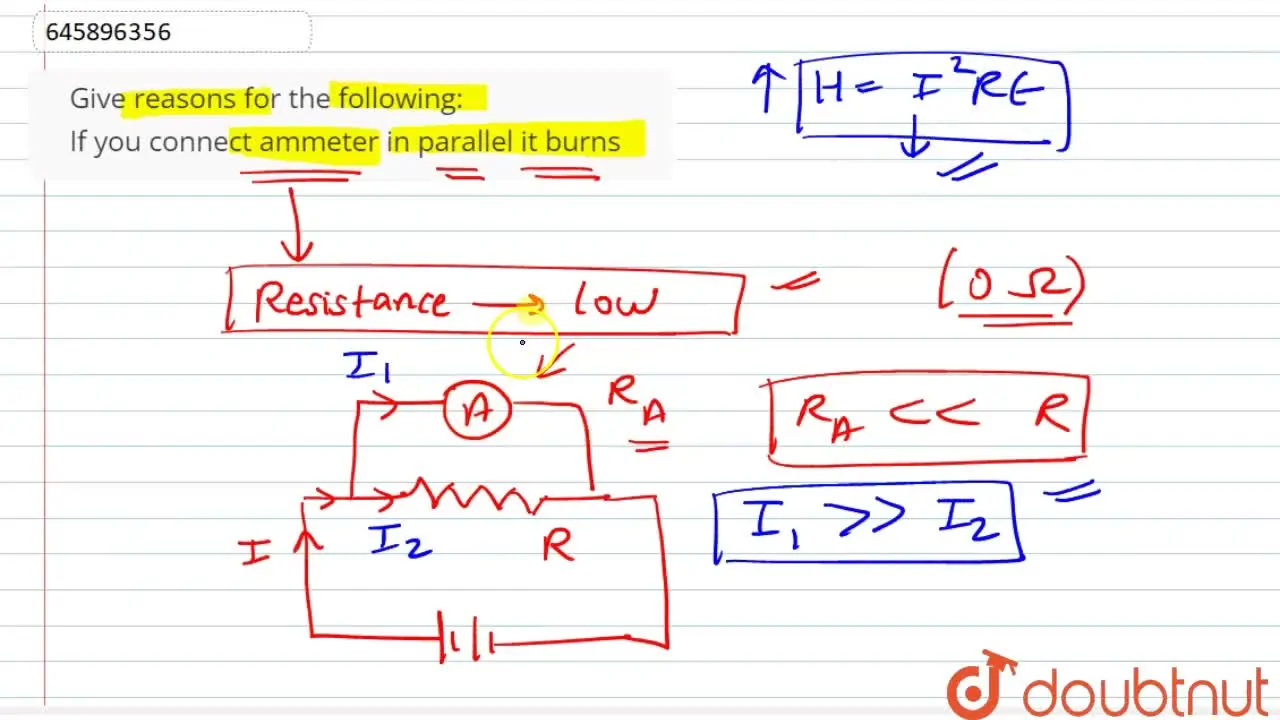 645896356
Give reasons for the following:
If you connect ammeter in parallel it burns
↑ H = I²Rt
Resistance → low
(0 Ω)
I₁
A
R_A
R_A << R
I₁ >> I₂
I
I₂
R
doubtnut